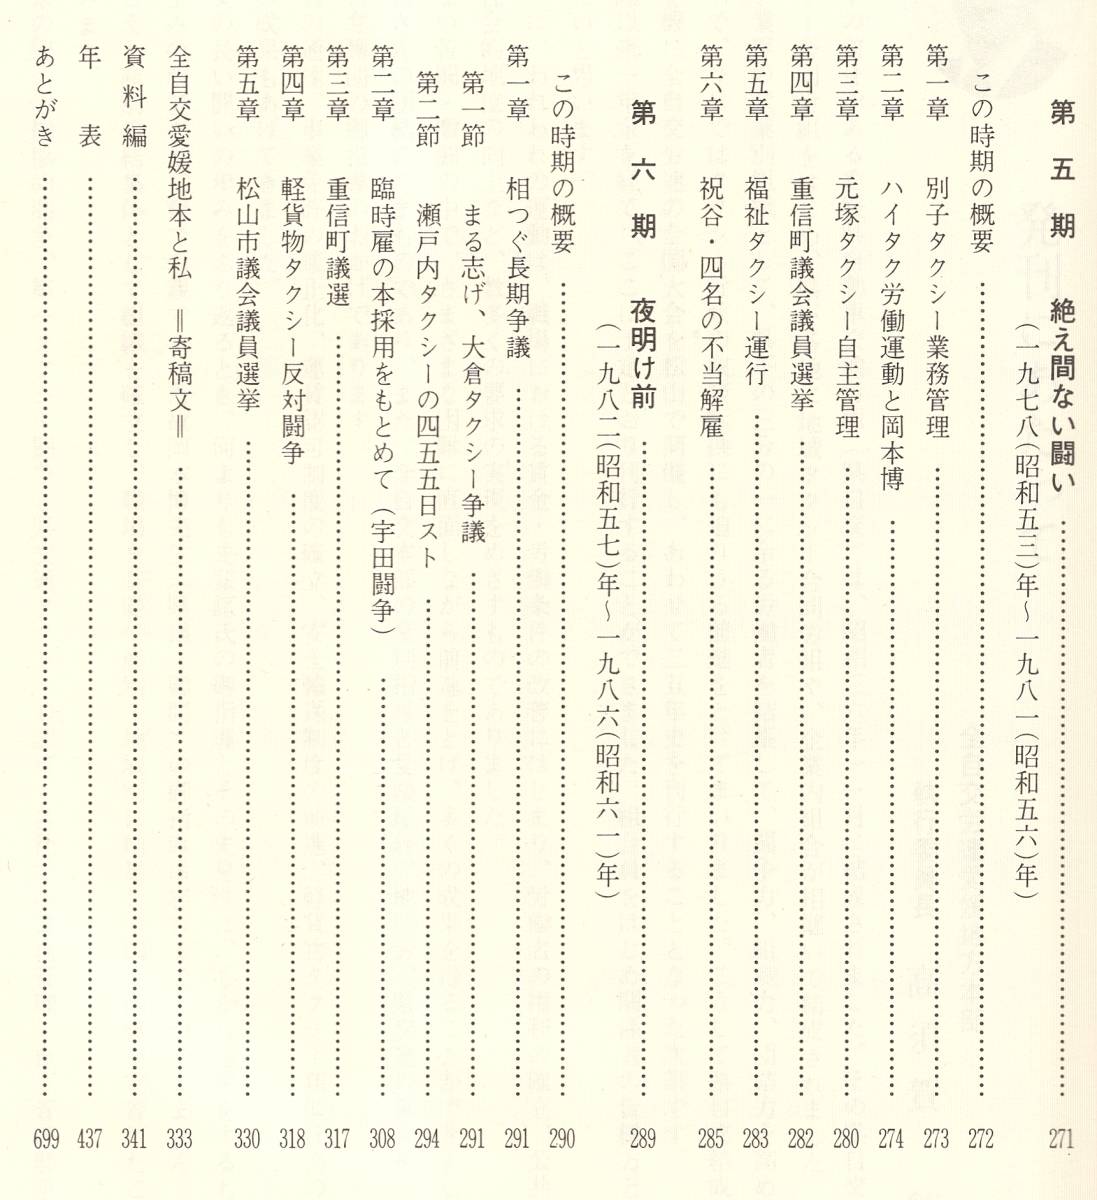 第五期 絶え間ない闘い……271
(一九七八(昭和五三)年～一九八一(昭和五六)年)
この時期の概要……272
第一章 別子タクシー業務管理……273
第二章 ハイタク労働運動と岡本博……274
第三章 元塚タクシー自主管理……280
第四章 重信町議会議員選挙……282
第五章 福祉タクシー運行……283
第六章 祝谷・四名の不当解雇……285
第六期 夜明け前……289
(一九八二(昭和五七)年～一九八六(昭和六一)年)
この時期の概要……290
第一章 相つぐ長期争議……291
第一節 まる志げ、大倉タクシー争議……291
第二節 瀬戸内タクシーの四五五日スト……294
第二章 臨時雇の本採用をもとめて(宇田闘争)……308
第三章 重信町議選……317
第四章 軽貨物タクシー反対闘争……318
第五章 松山市議会議員選挙……330
全自交愛媛地本と私 ＝寄稿文＝……333
資料編……341
年表……437
あとがき……699